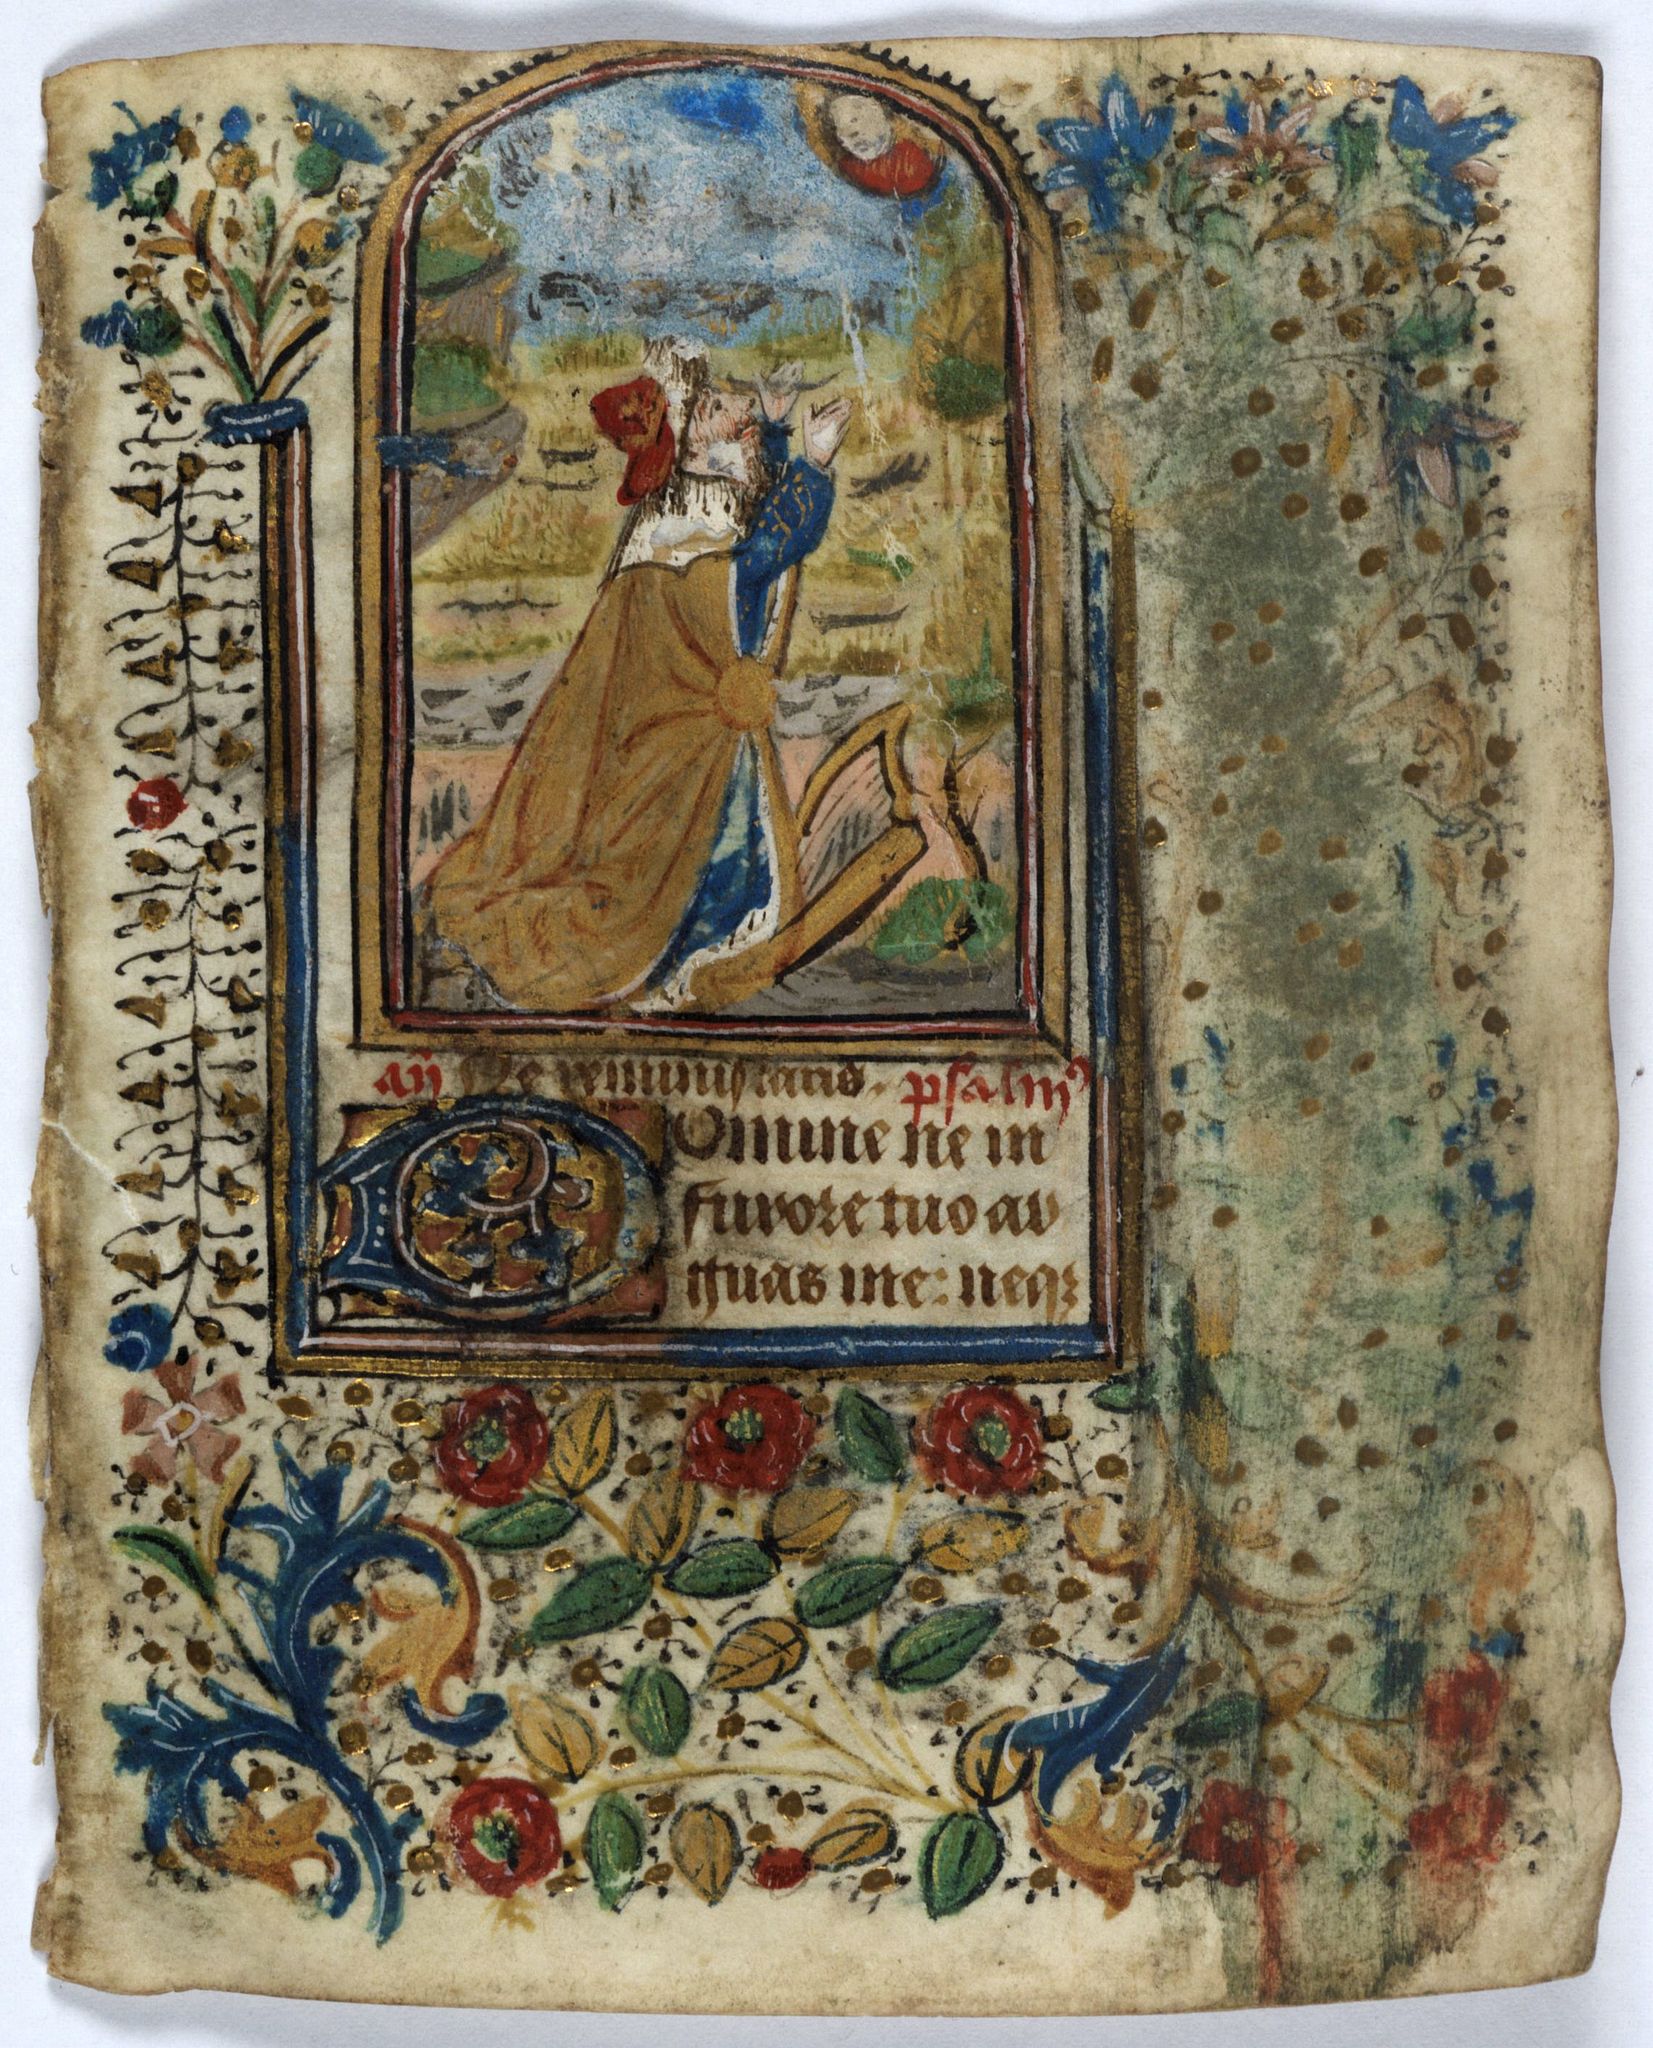 añ Ne reminiscaris. psalmꝰ
Domine ne in
furore tuo ar
guas me: neqꝫ